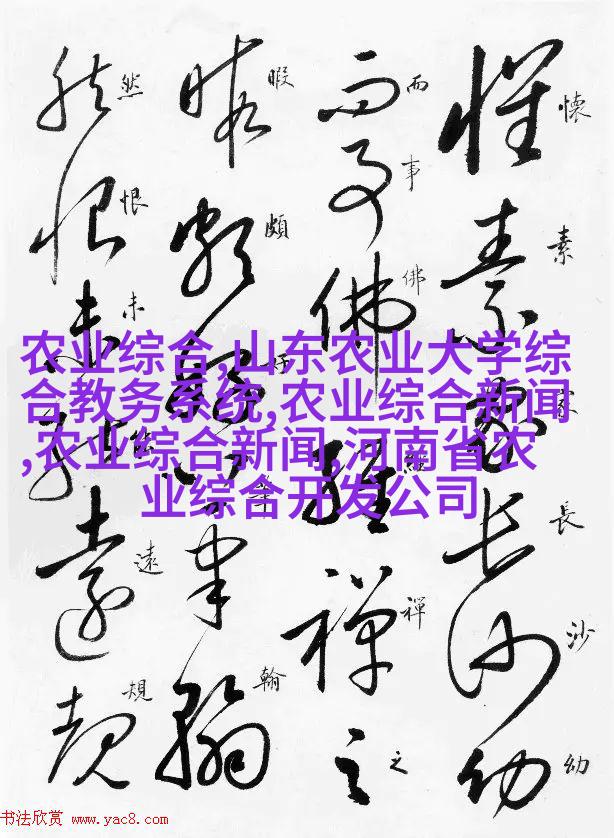 懷素家長沙幼
而事佛經禪之
暇頗好筆翰
然恨未能遠規
农业综合,山东农业大学综
合教务系统,农业综合新闻
,农业综合新闻,河南省农
业综合开发公司
书法欣赏 www.yac8.com